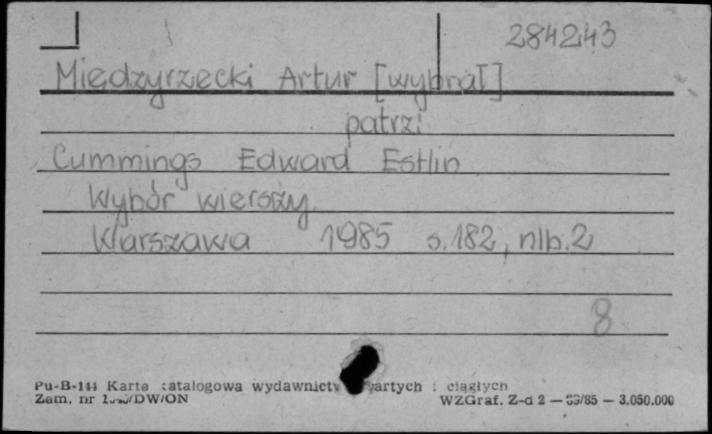 284243
Międzyrzecki Artur [wybrał]
patrz:
Cummings Edward Estlin
Wybór wierszy.
Warszawa 1985 s.182, nlb.2
8
Pu-B-144 Karta katalogowa wydawnictw zwartych i ciągłych
Zam. nr /DW/ON WZGraf. Z-d 2 — /85 — 3.050.000